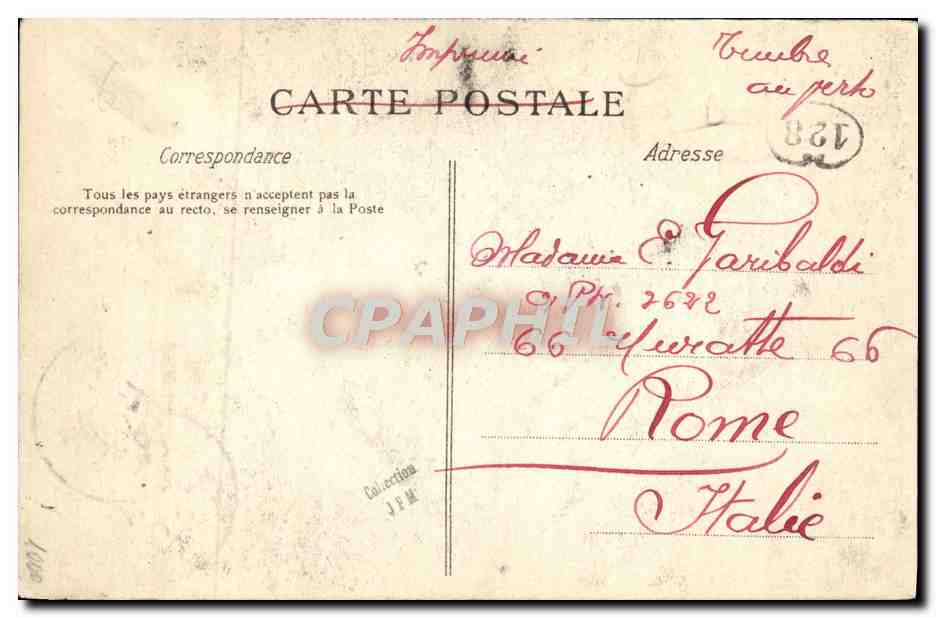 Imprimé
Timbre
au recto
CARTE POSTALE
128
Correspondance
Adresse
Tous les pays étrangers n'acceptent pas la
correspondance au recto, se renseigner à la Poste
Madame E. Garibaldi
2622
CPAPHIL
66 Muratte 66
Rome
Italie
Collection
J F M